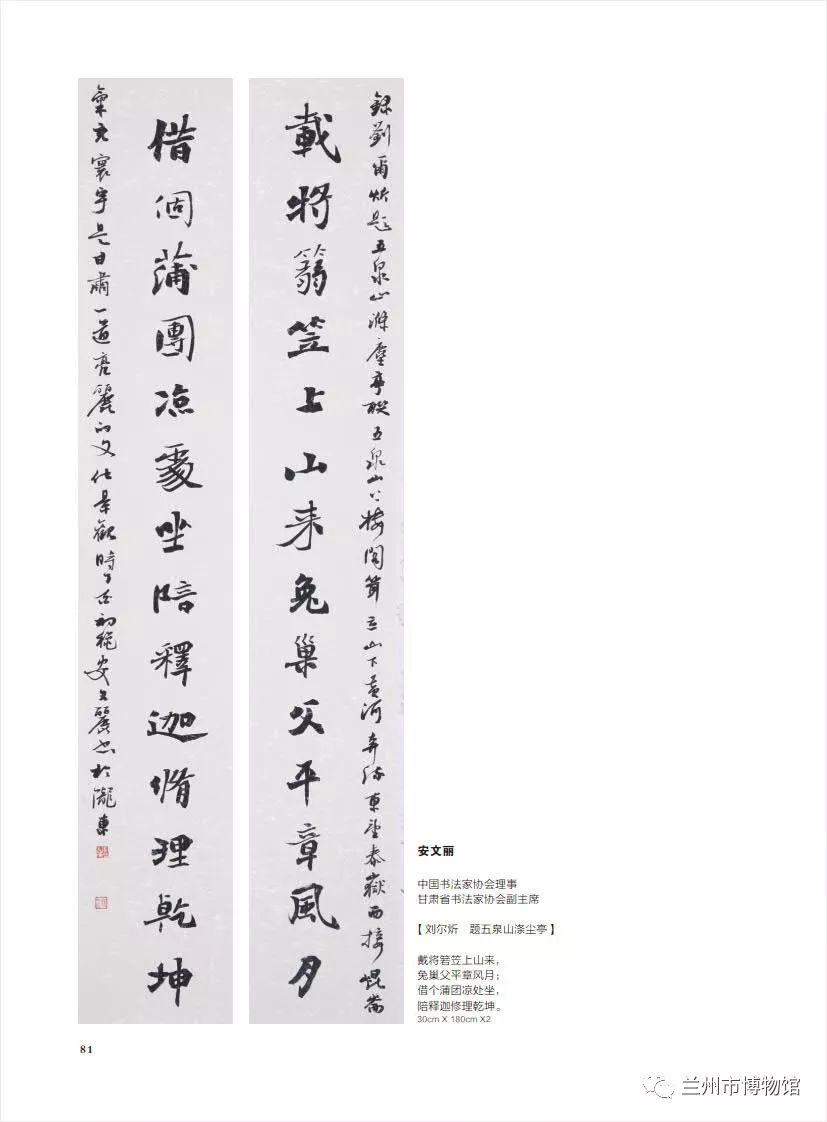 錄劉爾炘題五泉山滌塵亭聯五泉山上樓閣聳立山下黃河奔流東望泰嶽西接崐崙
載將箬笠上山来兔巢父平章風月
借個蒲團凉處坐陪釋迦脩理乾坤
氣充寰宇是甘肅一道亮麗的文化景觀時
初秋安文麗書於隴東
安文丽
中国书法家协会理事
甘肃省书法家协会副主席
【 刘尔炘 题五泉山涤尘亭 】
戴将箬笠上山来，
免巢父平章风月；
借个蒲团凉处坐，
陪释迦修理乾坤。
30cm X 180cm X2
81
兰州市博物馆